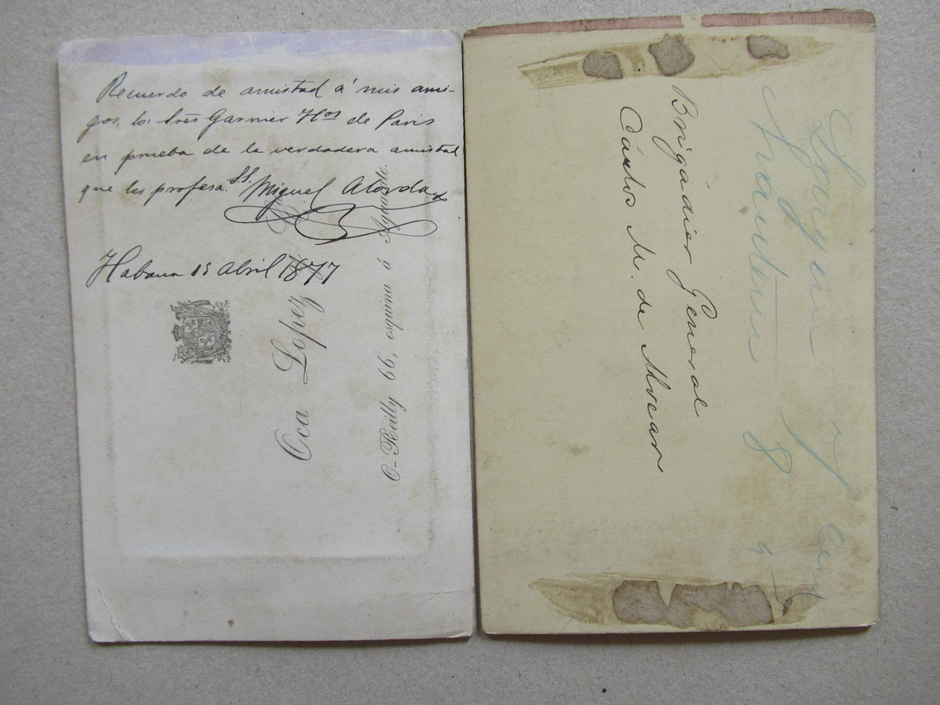 Recuerdo de amistad á mis ami-
gos, los tres Garnier Hos de Paris
en prueba de la verdadera amistad
que les profesa. SS. Miguel Alorda
Habana 15 abril 1877
Oca Lopez
O-Reilly 66, esquina á Aguacate.
Brigádier General
Cárlos M. de Alvear